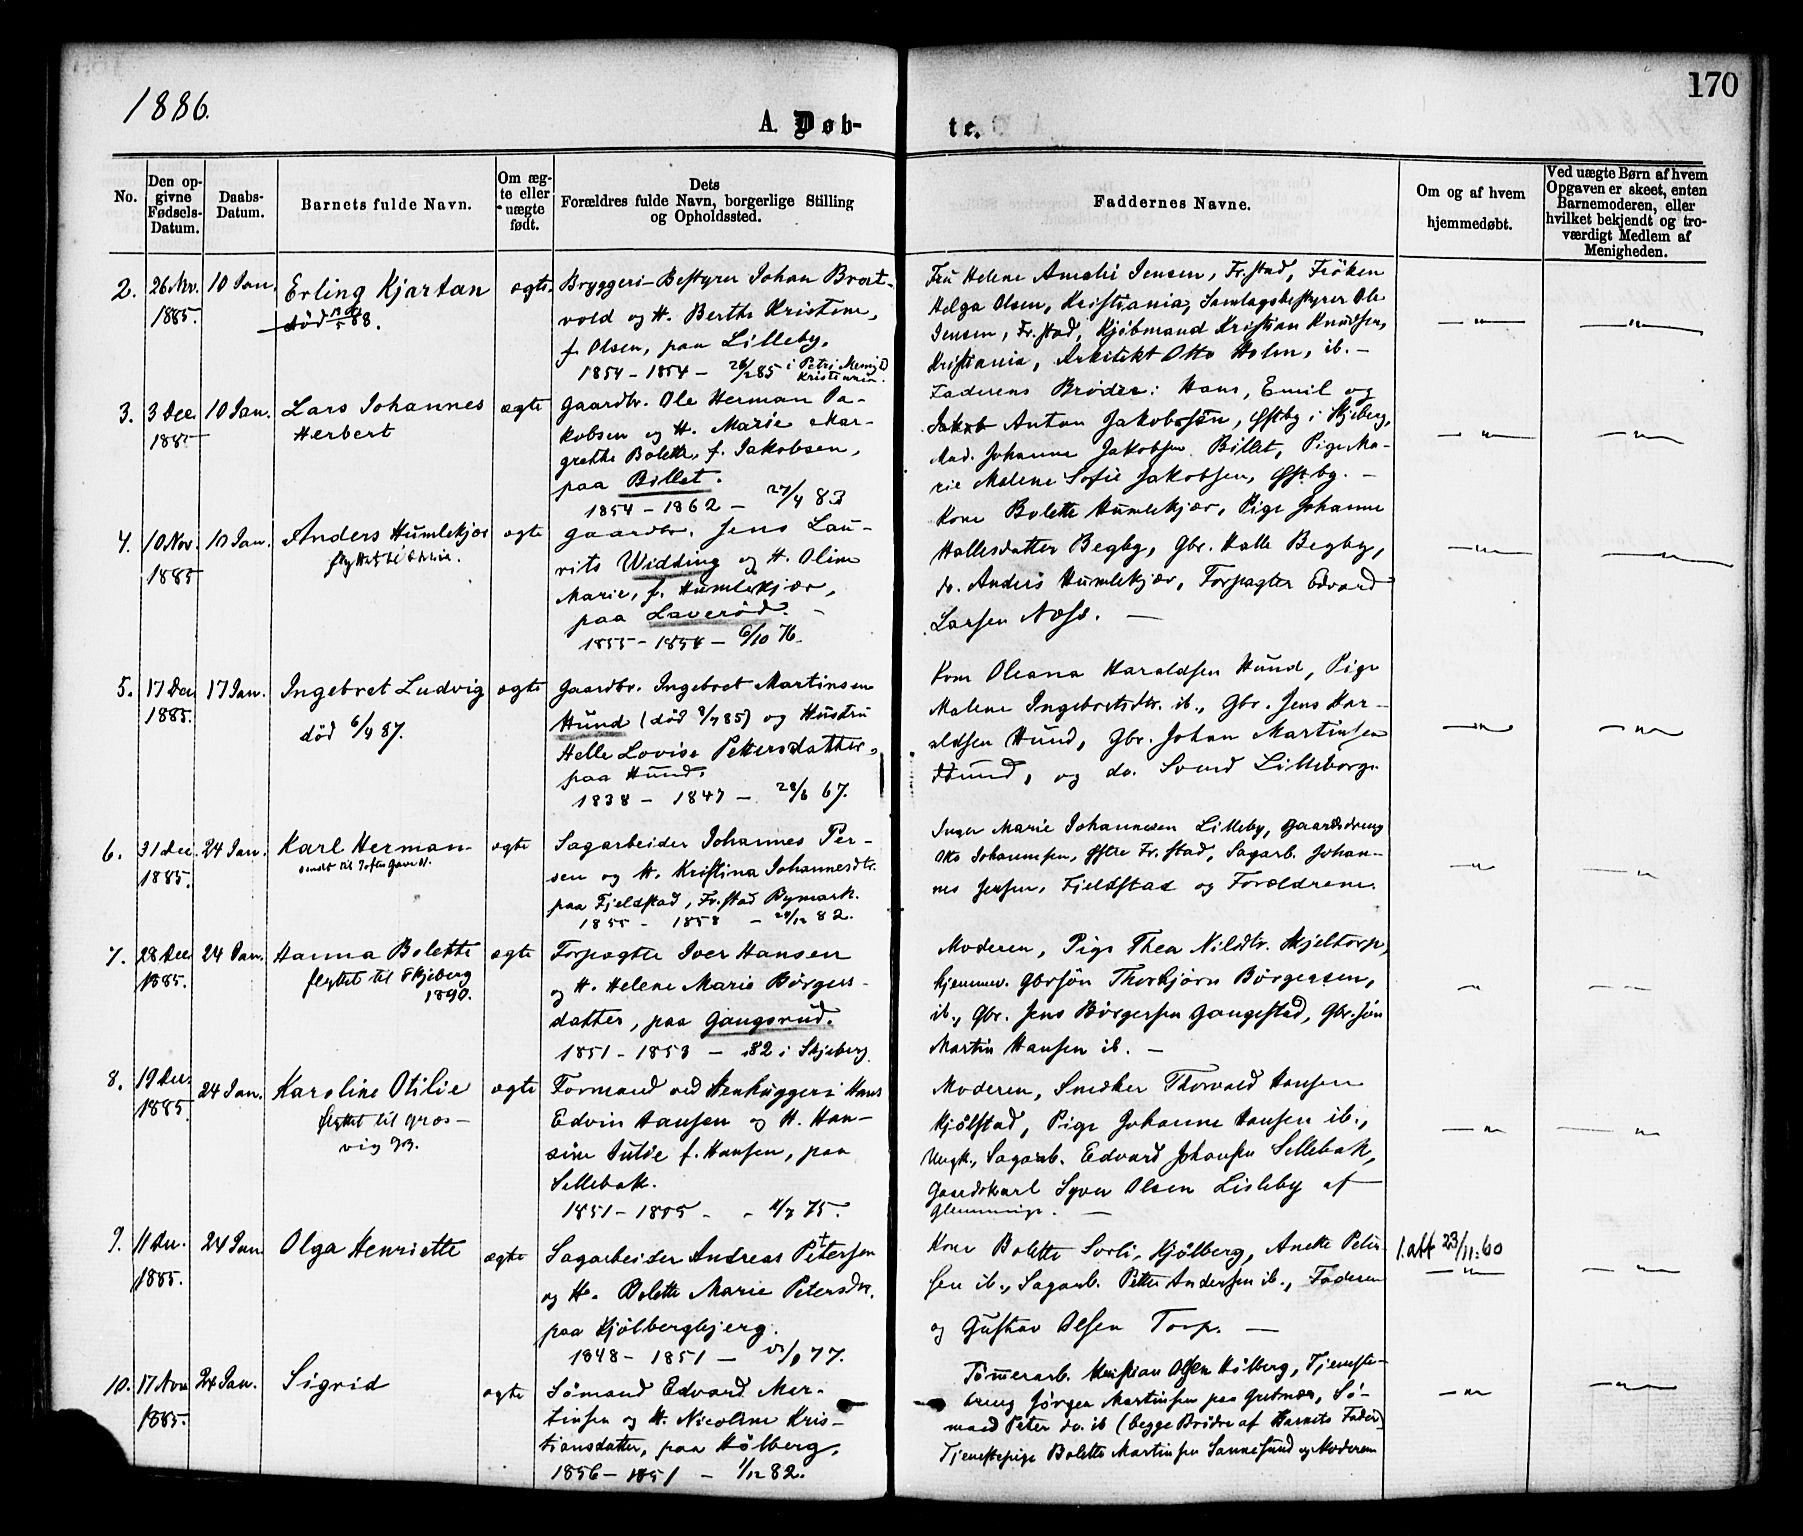 1886.
170
A. Døb-
te.
No.
Den op-
givne
Fødsels-
Datum.
Daabs-
Datum.
Barnets fulde Navn.
Om æg-
te eller
uægte
født.
Dets
Forældres fulde Navn, borgerlige Stilling
og Opholdssted.
Faddernes Navne.
Om og af hvem
hjemmedøbt.
Ved uægte Børn af hvem
Opgaven er skeet, enten
Barnemoderen, eller
hvilket bekjendt og tro-
værdigt Medlem af
Menigheden.
2.
26 Nov.
1885.
10 Jan.
Erling Kjartan
død 88.
ægte.
Bryggeri-Bestyrer Johan Brat-
vold og H. Berthe Kristine,
f. Olsen, paa Lilleby.
1854 - 1854 - 85 i Petri Menigh
Kristiania.
Fru Helene Amalie Jensen, Fr.stad, Fröken
Helga Olsen, Kristiania, Samlagsbestyrer Ole
Jensen, Fr.stad, Kjöbmand Kristian Knudsen,
Kristiania, Arkitekt Otto Holm, ib. -
— " —
— " —
3.
3 Dec.
1885
10 Jan.
Lars Johannes
Herbert
ægte
Gaardbr. Ole Herman Ja-
kobsen og H. Marie Mar-
grethe Bolette, f. Jakobsen,
paa Billet.
1854 - 1862 - 27/4 83
Faderens Brødre: Hans, Emil og
Jakob Anton Jakobssön, Østby i Skjeberg,
Mad. Johanne Jakobsen Billet, Pige Ma-
rie Malene Sofie Jakobsen, Østby. -
— " —
— " —
4.
10 Nov.
1885
10 Jan.
Anders Humlekjær
flyttet til Chria.
ægte
Gaardbr. Jens Lau-
rits Widding og H. Oline
Marie, f. Humlekjær,
paa Laverød. -
1855 - 1854 - 6/10 76.
Kone Bolette Humlekjær, Pige Johanne
Hallesdatter Begby, Gbr. Halle Begby,
do. Anders Humlekjær, Forpagter Edvard
Larsen Næss. —
— " —
— " —
5.
17 Dec
1885.
17 Jan.
Ingebret Ludvig
død 6/4 87.
ægte
Gaardbr. Ingebret Martinsen
Hund (död 8/7 85) og Hustru
Helle Lovise Pettersdatter,
paa Hund.
1838 - 1847 - 28/6 67.
Kone Oleana Haraldsen Hund, Pige
Malene Ingebretsdtr. ib., Gbr. Jens Har-
aldsen Hund, Gbr. Johan Martinsen
Hund, og do. Svend Lilleborge
— " —
— " —
6.
31 Dec
1885.
24 Jan.
Karl Herman
ægte
Sagarbeider Johannes Per-
sen og H. Kristina Johannesdtr.
paa Fjeldstad, Fr.stad Bymark.
1855 - 1858 - 28/12 82.
Inger Marie Johannesen Lilleby, Gaardsdreng
Otto Johannesen, Østre Fr.stad, Sagarb. Johan-
nes Jensen, Fjeldstad og Forældrene.
— " —
— " —
7.
28 Dec
1885.
24 Jan.
Hanna Bolette
flyttet til Skjeberg
1890.
ægte
Forpagter Iver Hansen
og H. Helene Marie Börgers-
datter, paa Gangsrud.
1851 - 1853 - 82 i Skjeberg
Moderen, Pige Thea Nilsdtr. Skjeltorp,
hjemmev. Gbrsön Thorbjörn Börgersen,
ib., Gbr. Jens Börgersen Gangestad, Gbr.sön
Martin Hansen ib. —
— " —
— " —
8.
19 Dec.
1885
24 Jan.
Karoline Otilie
flyttet til Gres-
vig
ægte
Formand ved Stenhuggeri Hans
Edvin Hansen og H. Han-
sine Julie f. Hansen, paa
Sellebak.
1851 - 1855 - 75.
Moderen, Snedker Thorvald Hansen
Kjölstad, Pige Johanne Hansen ib.,
Ungk., Sagarb. Edvard Johansen Sellebak,
Gaardskarl Syver Olsen Lisleby af
Glemminge. —
— " —
— " —
9.
11 Dec.
1885.
24 Jan
Olga Henriette
ægte
Sagarbeider Andreas Petersen
og H. Bolette Marie Petersdtr.
paa Kjölbergbjerg.
1848 - 1851 - 77.
Kone Bolette Sorli, Kjölberg, Anette Peter-
sen ib., Sagarb. Petter Andersen ib., Faderen
og Gustav Olsen Torp. —
1.att 23/11.60
— " —
— " —
10.
17 Nov
1885.
24 Jan.
Sigrid
ægte
Sömand Edvard Mar-
tinsen og H. Nicoline Kris-
tiansdatter, paa Hölberg,
1856 - 1851 - 1/12 82.
Tömmerarb. Kristian Olsen Hölberg, Tjeneste-
dreng Jörgen Martinsen paa Gretnæs, Sö-
mand Peter do. ib (begge Brödre af Barnets Fader)
Tjenestepige Bolette Martinsen Sannesund og Moderen
— " —
— " —